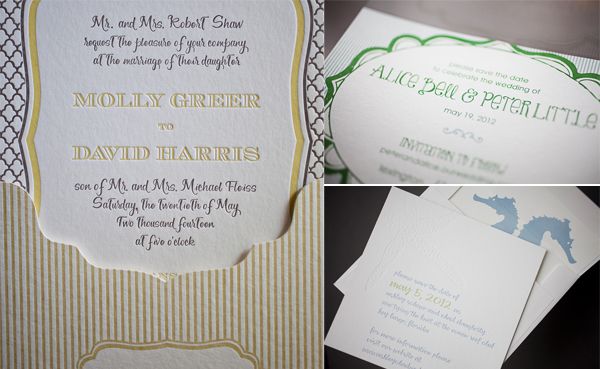 Mr. and Mrs. Robert Shaw
request the pleasure of your company
at the marriage of their daughter
MOLLY GREER
TO
DAVID HARRIS
son of Mr. and Mrs. Michael Floiss
Saturday, the twentieth of May
Two thousand fourteen
at five o'clock
please save the date
to celebrate the wedding of
ALICE BELL & PETER LITTLE
may 19, 2012
INVITATION TO FOLLOW
please save the date of
may 5, 2012
key largo, florida
for more information please
visit our website at